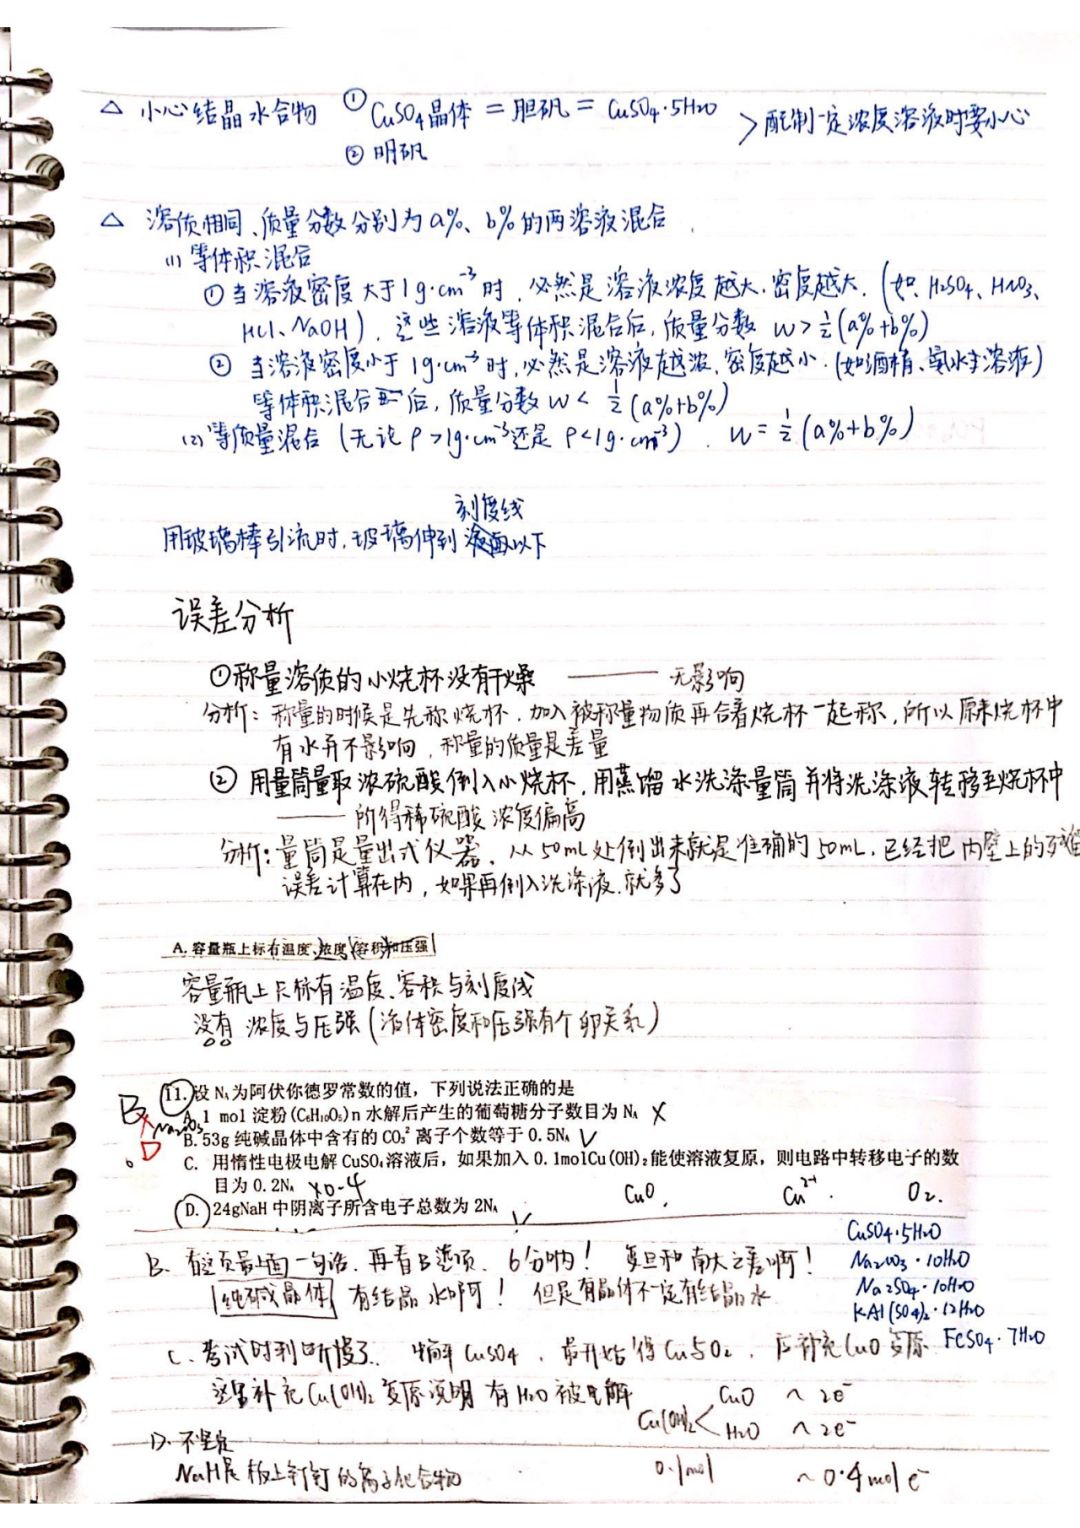 △ 小心结晶水合物 ① CuSO₄晶体 = 胆矾 = CuSO₄·5H₂O > 配制一定浓度溶液时要小心
② 明矾
△ 溶质相同、质量分数分别为a%、b%的两溶液混合
(1) 等体积混合
① 当溶液密度大于1g·cm⁻³时，必然是溶液浓度越大，密度越大.(如 H₂SO₄、HNO₃、
HCl、NaOH)，这些溶液等体积混合后，质量分数 w>½(a%+b%)
② 当溶液密度小于1g·cm⁻³时，必然是溶液越浓，密度越小.(如酒精、氨水等溶液)
等体积混合后，质量分数 w<½(a%+b%)
(2) 等质量混合 (无论ρ>1g·cm⁻³还是ρ<1g·cm⁻³)，w=½(a%+b%)
刻度线
用玻璃棒引流时，玻璃伸到液面以下
误差分析
①称量溶质的小烧杯没有干燥 —— 无影响
分析：称量的时候是先称烧杯，加入被称量物质再合着烧杯一起称，所以原来烧杯中
有水并不影响，称量的质量是差量
② 用量筒量取浓硫酸倒入小烧杯，用蒸馏水洗涤量筒并将洗涤液转移至烧杯中
—— 所得稀硫酸浓度偏高
分析：量筒是量出式仪器，从50mL处倒出来就是准确的50mL，已经把内壁上的残留
误差计算在内，如果再倒入洗涤液，就多了
A. 容量瓶上标有温度、浓度、容积和压强
容量瓶上只标有温度、容积与刻度线
没有 浓度与压强 (液体密度和压强有个卵关系)
11. 设 Nₐ为阿伏你德罗常数的值，下列说法正确的是
B
A. 1 mol 淀粉(C₆H₁₀O₅)n 水解后产生的葡萄糖分子数目为 Nₐ ×
Na₂CO₃
B. 53g 纯碱晶体中含有的 CO₃²⁻离子个数等于 0.5Nₐ √
D
C. 用惰性电极电解 CuSO₄溶液后，如果加入 0.1molCu(OH)₂能使溶液复原，则电路中转移电子的数
目为 0.2Nₐ ×0.4 CuO. Cu²⁺. O₂.
D. 24gNaH 中阴离子所含电子总数为 2Nₐ √
CuSO₄·5H₂O
B. 看这页最上面一句话，再看B选项，6分呐！复旦和南大之差啊！
Na₂CO₃·10H₂O
纯碱晶体 有结晶水啊！但是有晶体不一定有结晶水
Na₂SO₄·10H₂O
KAl(SO₄)₂·12H₂O
FeSO₄·7H₂O
C. 考试时判断错了，电解CuSO₄，刚开始得Cu与O₂，应补充CuO复原
这里补充Cu(OH)₂复原说明有H₂O被电解
Cu(OH)₂ < CuO ~ 2e⁻
H₂O ~ 2e⁻
D. 不坚定
NaH是板上钉钉的离子化合物
0.1mol ~0.4mol e⁻